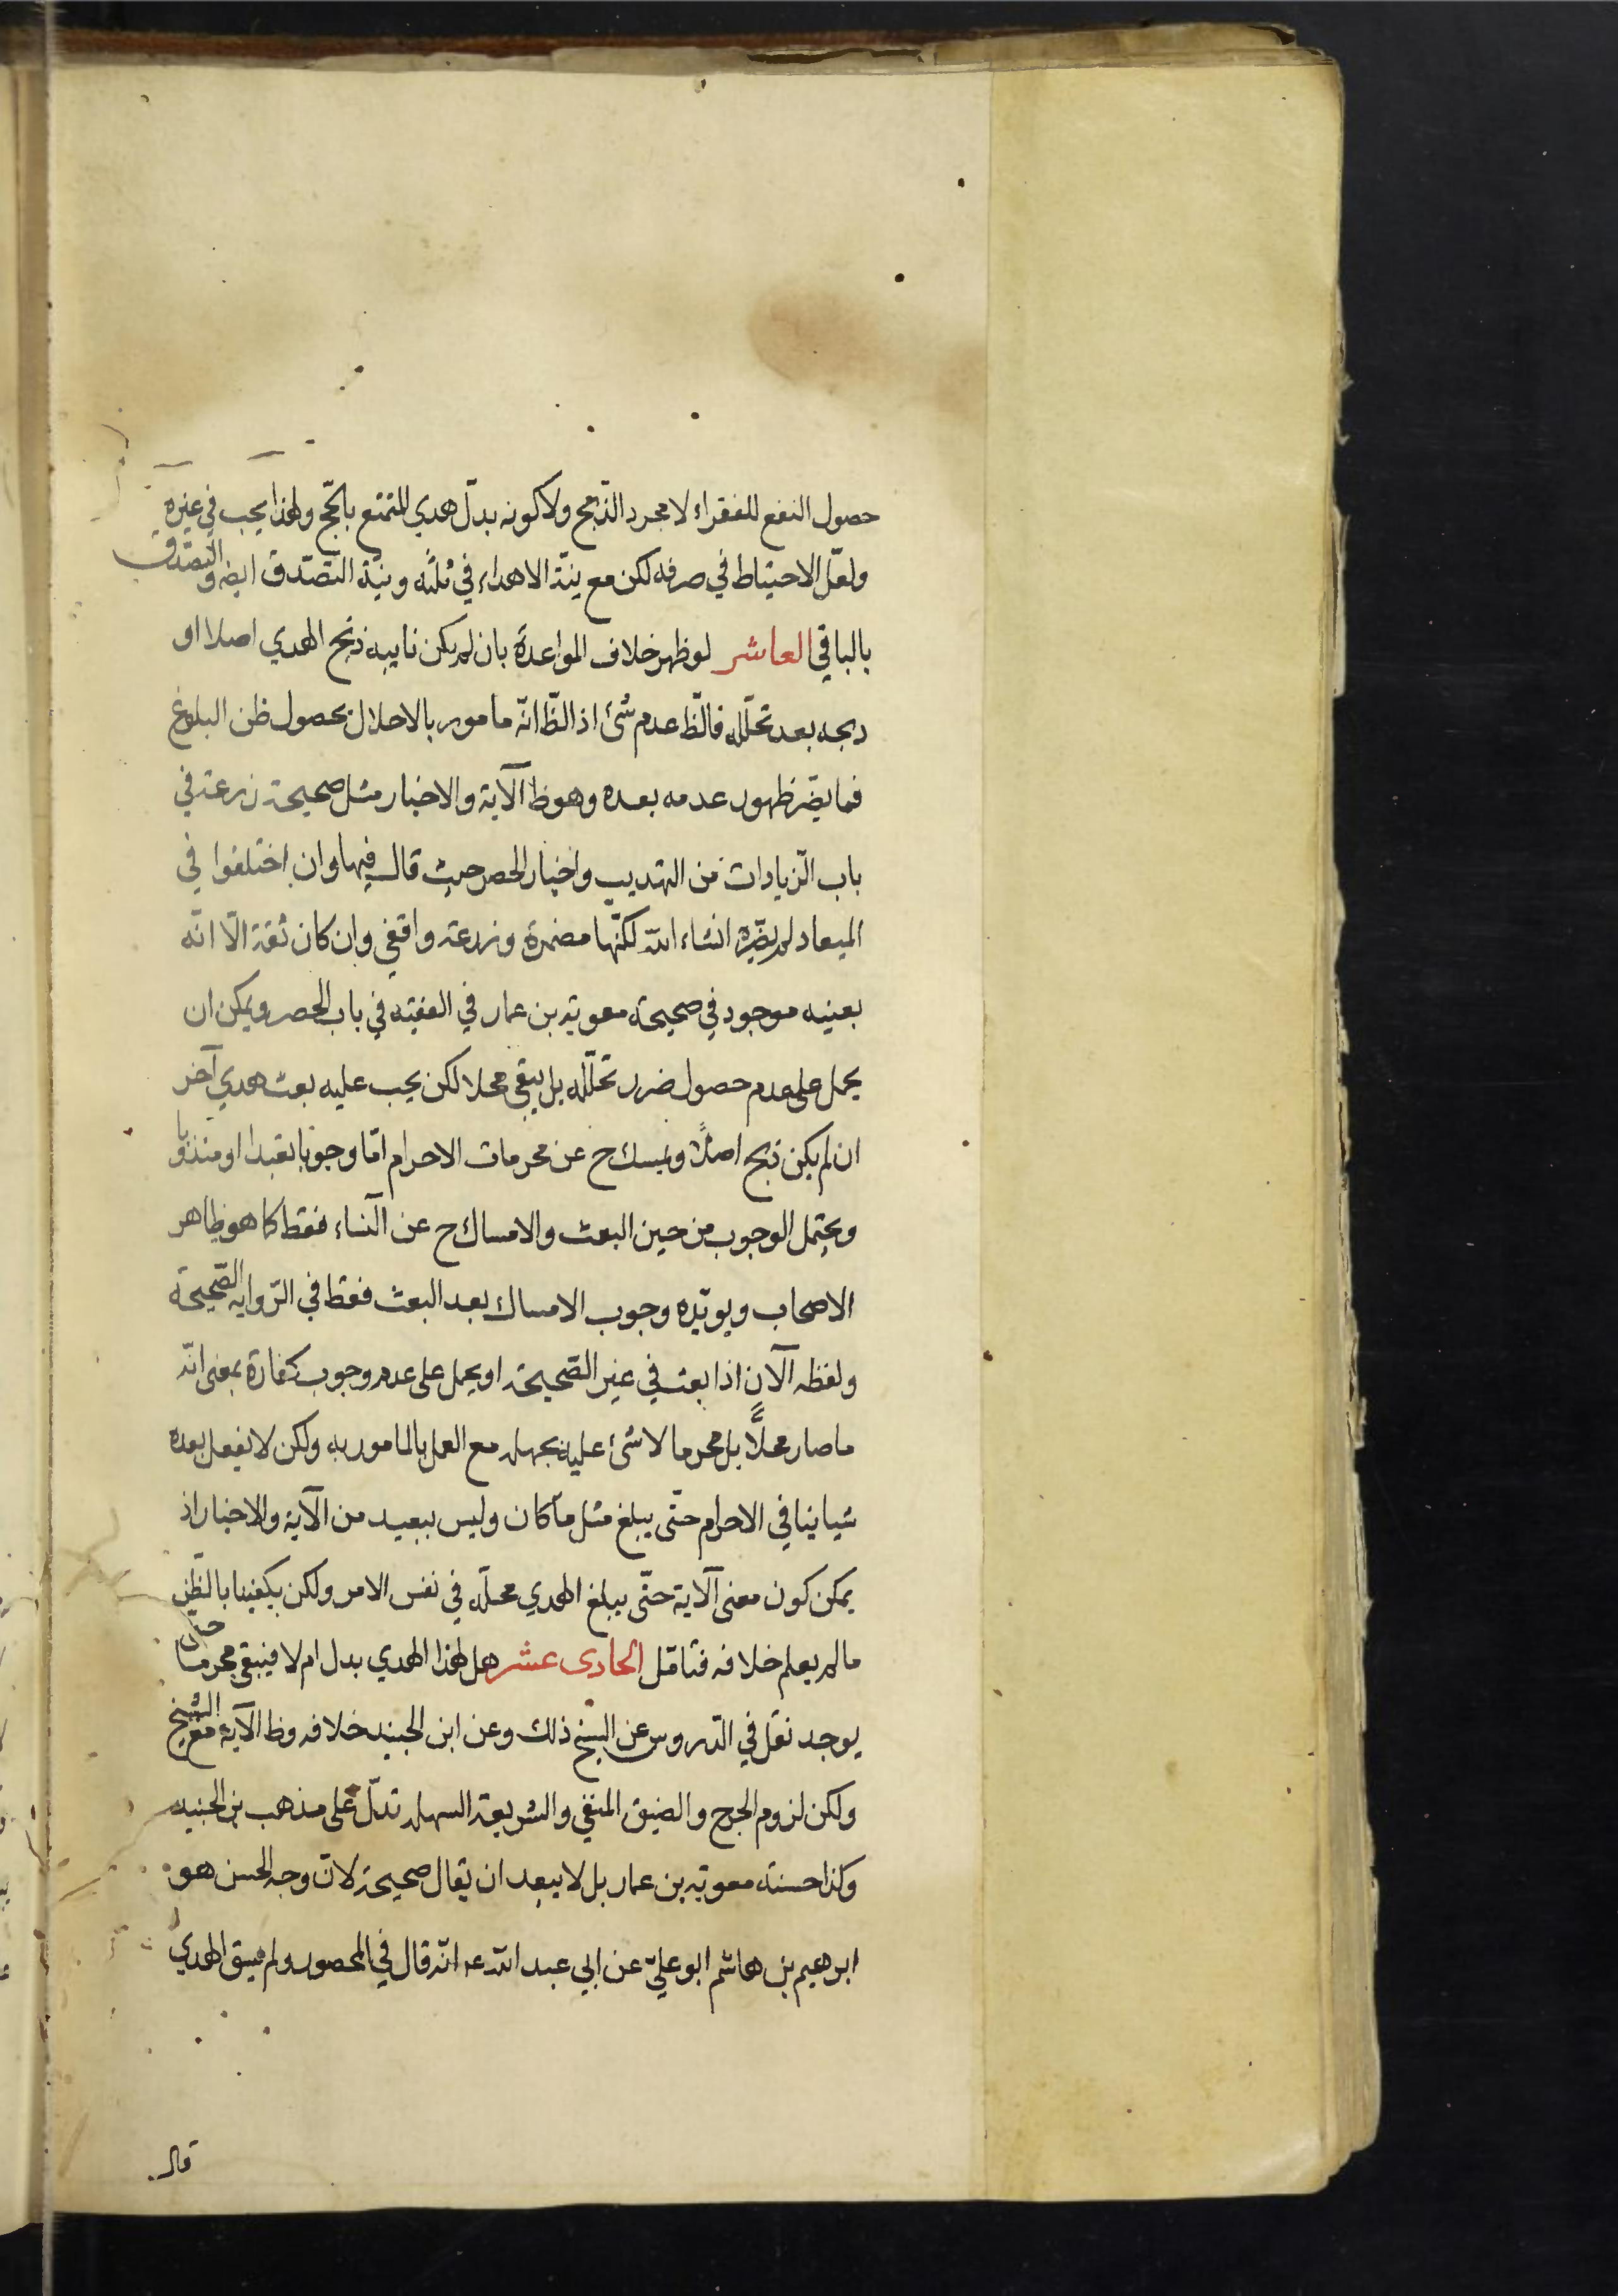 حصول النفع للفقراء لا مجرد الذّبح ولا كونه بدل هدي للتمتع بالحّج ولهذا يجب في غيره
ولعّل الاحتياط في صرفه لكن مع نيّة الاهداء في ثلثه ونيّة التصّدق ايضه والتصّدق
بالباقي العاشر لو ظهر خلاف المواعدة بان لم يكن نايبه ذبح الهدي اصلا او
ذبحه بعد تحلّله فالظ عدم شئ اذ الظّ انّه مامور بالاحلال بحصول ظن البلوغ
فما يضّر ظهور عدمه بعده وهو ظ الآية والاخبار مثل صحيحة زرعة في
باب الزّيادات من التهذيب واخبار الحصر حيث قال فيها وان اختلفوا في
الميعاد لم يضّره انشاء الله لكنّها مضمرة وزرعة واقفي وان كان ثقة الّا انّه
بعينه موجود في صحيحة معوية بن عمار في الفقيه في باب الحصر ويمكن ان
يحمل على عدم حصول ضرر تحلّله بل يبقى محلا لكن يجب عليه بعث هدي آخر
ان لم يكن ذبح اصلاً ويمسك ح عن محرمات الاحرام امّا وجوبا تعبدا او مندوبا
ويحتمل الوجوب من حين البعث والامساك ح عن النساء فقط كما هو ظاهر
الاصحاب ويويّده وجوب الامساك بعد البعث فقط في الرّوايه الصّحيحة
ولفظه الآن اذا بعث في غير الصّحيحة او يحمل على عدم وجوب كفارة بمعنى انّه
ما صار محلاًّ بل محرما لا شئ عليه بجهله مع العمل بالمامور به ولكن لا يفعل بعده
شيا ينافي الاحرام حتّى يبلغ مثل ما كان وليس ببعيد من الآية والاخبار اذ
يمكن كون معنى الآية حتّى يبلغ الهدي محلّه في نفس الامر ولكن يكفينا بالظّن
ما لم يعلم خلافه فتامّل الحادى عشر هل لهذا الهدي بدل ام لا فيبقى محرما حتى
يوجد نقل في الدروس عن الشيخ ذلك وعن ابن الجنيد خلافه وظ الآية مع الشيخ
ولكن لزوم الحرج والضيق المنفي والشريعة السهلة تدلّ على مذهب بن الجنيد
وكذا حسنة معوية بن عمار بل لا يبعد ان يقال صحيحة لانّ وجه الحسن هو
ابرهيم بن هاشم ابو عليّ عن ابي عبد الله ع انّه قال في المحصور ولم يسق الهدي
قال